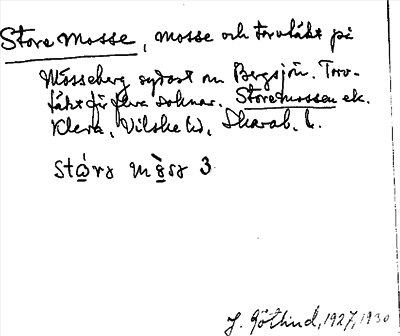 Stora Mosse, mosse och torvtäkt på
Mösseberg sydost om Bergsjön. Torv-
täkt för flera socknar. Storemossen ek.
Kleva, Vilske hd, Skarab. l.
3
J. Götlind, 1927, 1930